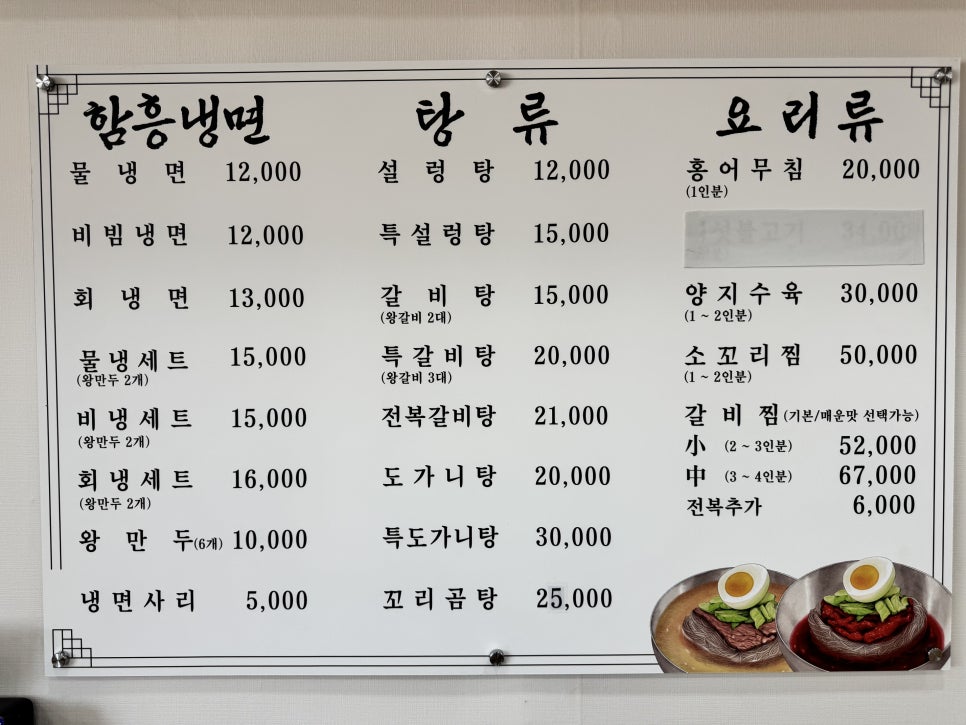 함흥냉면
물냉면 12,000
비빔냉면 12,000
회냉면 13,000
물냉세트 15,000
(왕만두 2개)
비냉세트 15,000
(왕만두 2개)
회냉세트 16,000
(왕만두 2개)
왕만두(6개) 10,000
냉면사리 5,000
탕류
설렁탕 12,000
특설렁탕 15,000
갈비탕 15,000
(왕갈비 2대)
특갈비탕 20,000
(왕갈비 3대)
전복갈비탕 21,000
도가니탕 20,000
특도가니탕 30,000
꼬리곰탕 25,000
요리류
홍어무침 20,000
(1인분)
양지수육 30,000
(1 ~ 2인분)
소꼬리찜 50,000
(1 ~ 2인분)
갈비찜(기본/매운맛 선택가능)
小 (2 ~ 3인분) 52,000
中 (3 ~ 4인분) 67,000
전복추가 6,000